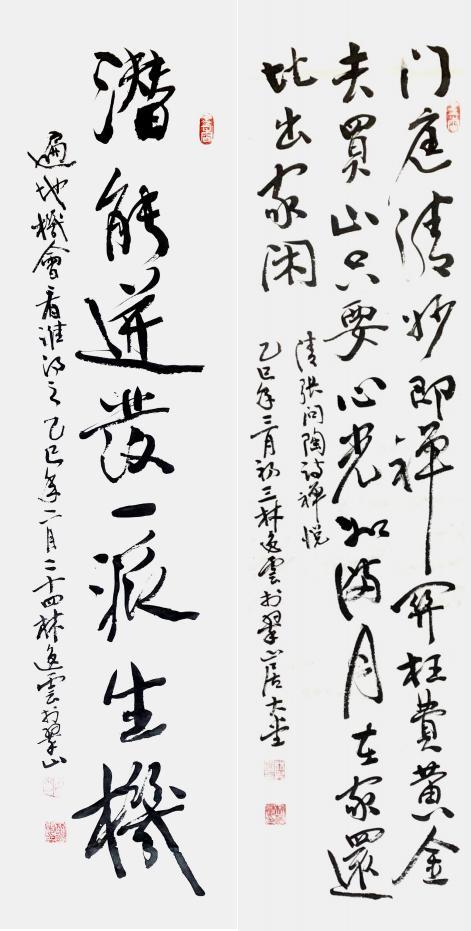 门庭清妙即禅関枉費黄金
去買山只要心光如满月在家還
比出家闲
清張问陶诗禅悦
乙巳年三月初三林逸雲於翠山居大堂
潜能迸發一派生機
遍地機會看谁得之乙巳年二月二十四林逸雲於翠山